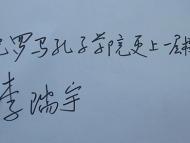 罗马孔子学院更上一层
李瑞宇